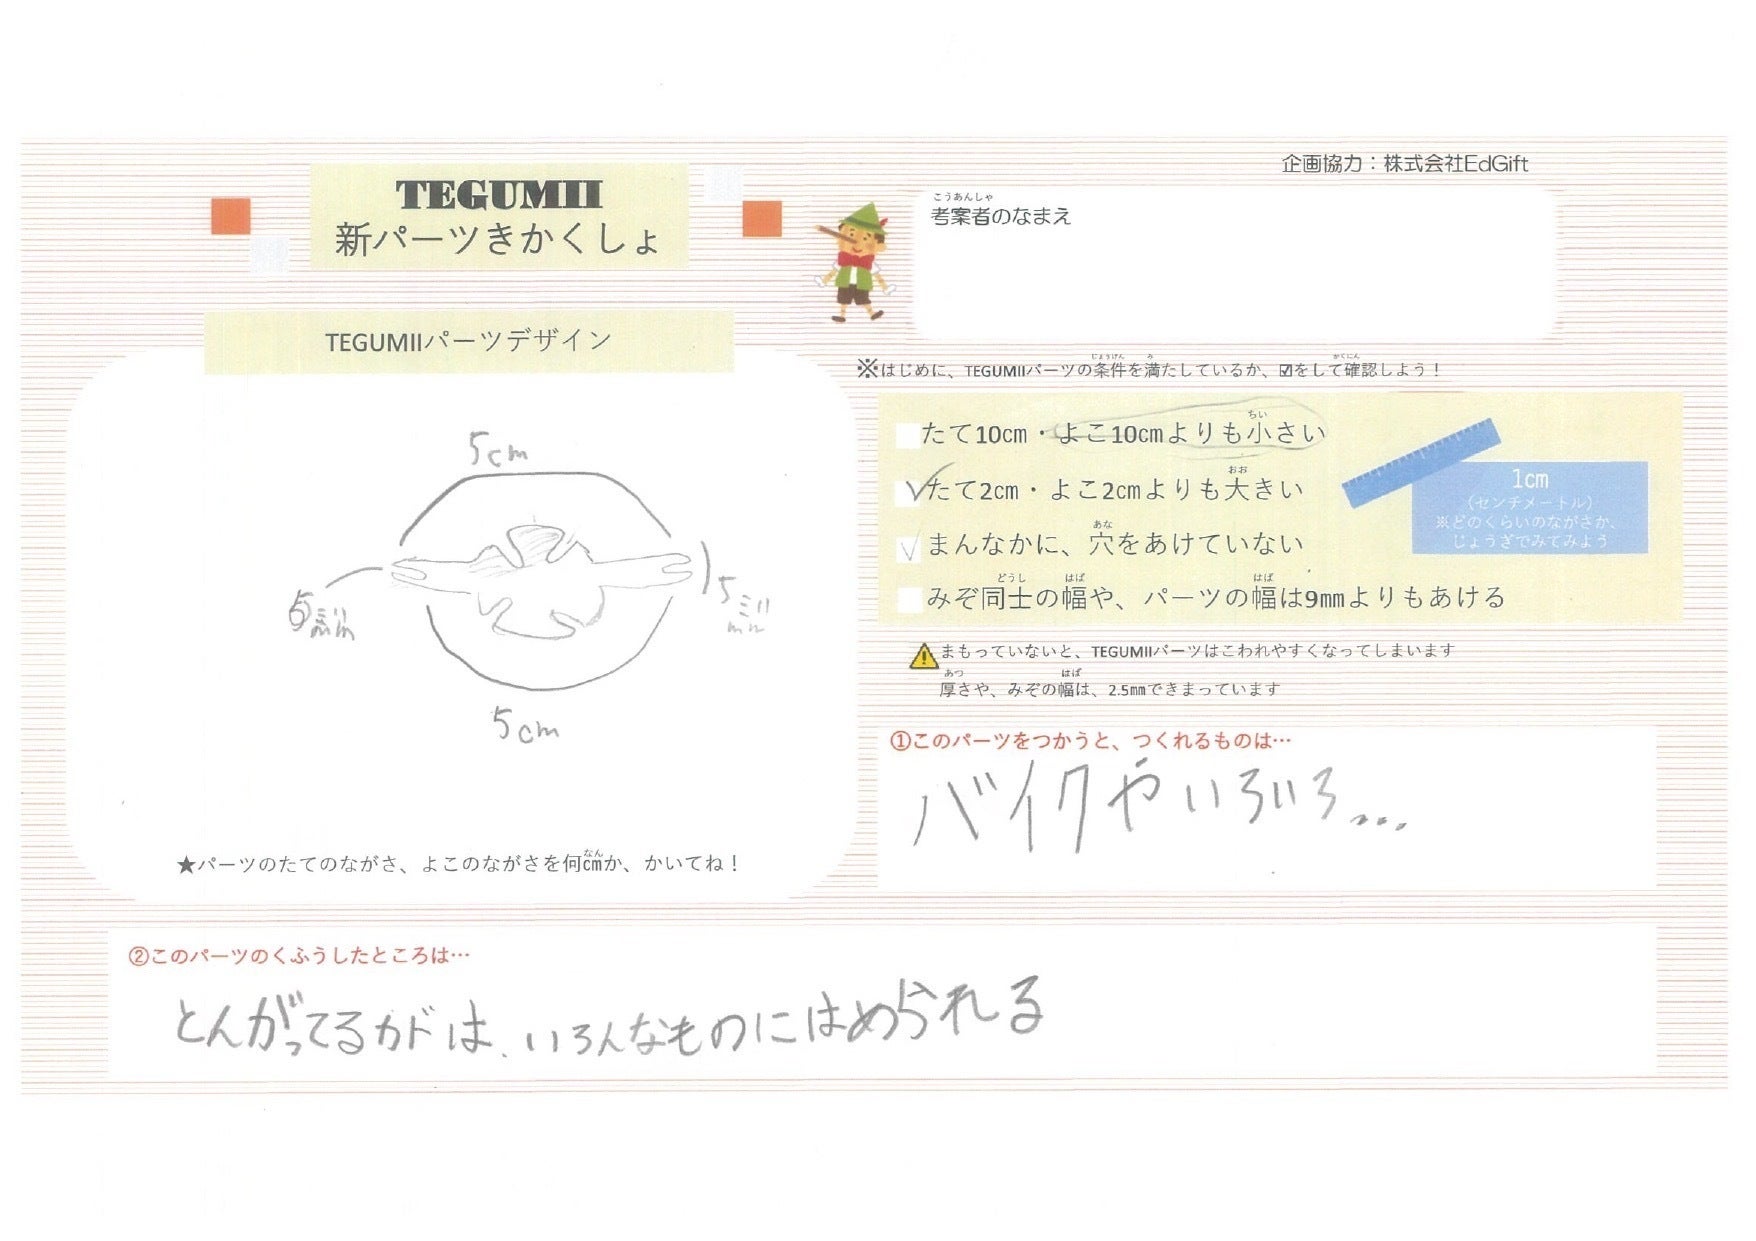 企画協力：株式会社EdGift
TEGUMII
新パーツきかくしょ
こうあんしゃ
考案者のなまえ
TEGUMIIパーツデザイン
5cm
5ミリ
mm
5ミリ
mm
5cm
★パーツのたてのながさ、よこのながさを何cmか、かいてね！
なん
じょうけん み かくにん
※はじめに、TEGUMIIパーツの条件を満たしているか、☑をして確認しよう！
ちい
たて10cm・よこ10cmよりも小さい
おお
たて2cm・よこ2cmよりも大きい
あな
まんなかに、穴をあけていない
どうし はば はば
みぞ同士の幅や、パーツの幅は9mmよりもあける
1cm
（センチメートル）
※どのくらいのながさか、
じょうぎでみてみよう
まもっていないと、TEGUMIIパーツはこわれやすくなってしまいます
あつ はば
厚さや、みぞの幅は、2.5mmできまっています
①このパーツをつかうと、つくれるものは…
バイクやいろいろ...
②このパーツのくふうしたところは…
とんがってるカドは、いろんなものにはめられる